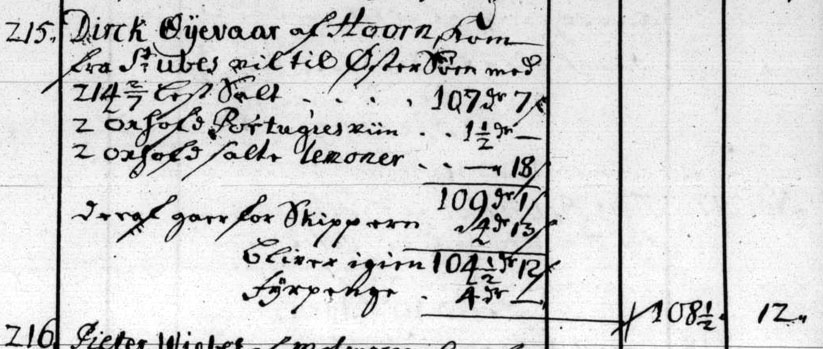 215. Dirck Öÿevaar af Hoorn, kom
fra St: ubes vil til Øster Söen med
214 2/7 Lest Salt . . . . 107 dr 7 s
2 oxhofd Portugies viin . . 1 1/2 dr —
2 oxhofd salte Lemoner . . — 18 s
109 dr 1 s
deraf gaar for Skippern 4 dr 13 s
bliver igien 104 1/2 dr 12 s
fÿrpenge . 4 dr —
108 1/2 . 12 "
216 Pieter